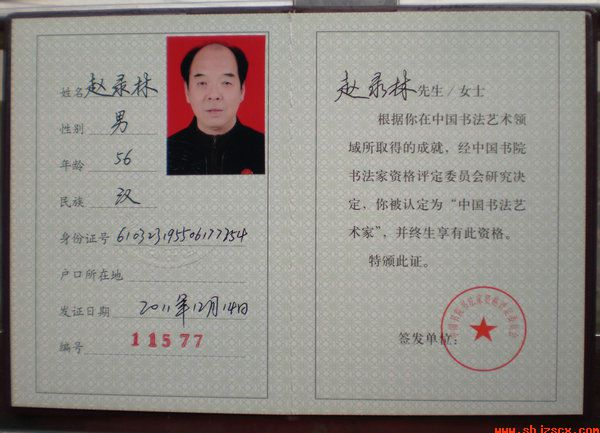 姓名 赵录林
性别 男
年龄 56
民族 汉
身份证号 610323195506177354
户口所在地
发证日期 2011年12月14日
编号 11577
赵录林 先生/女士
根据你在中国书法艺术领
域所取得的成就，经中国书院
书法家资格评定委员会研究决
定，你被认定为“中国书法艺
术家”，并终生享有此资格。
特颁此证。
签发单位：
中国书院书法家资格评定委员会
www.shjzscx.com